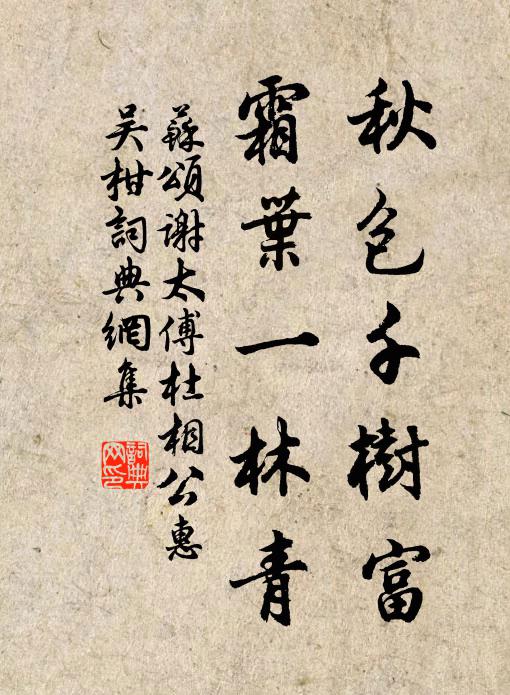 秋色千樹富
霜葉一林青
蘇頌謝太傅杜相公惠
吴柑詞典網集
詞典網印